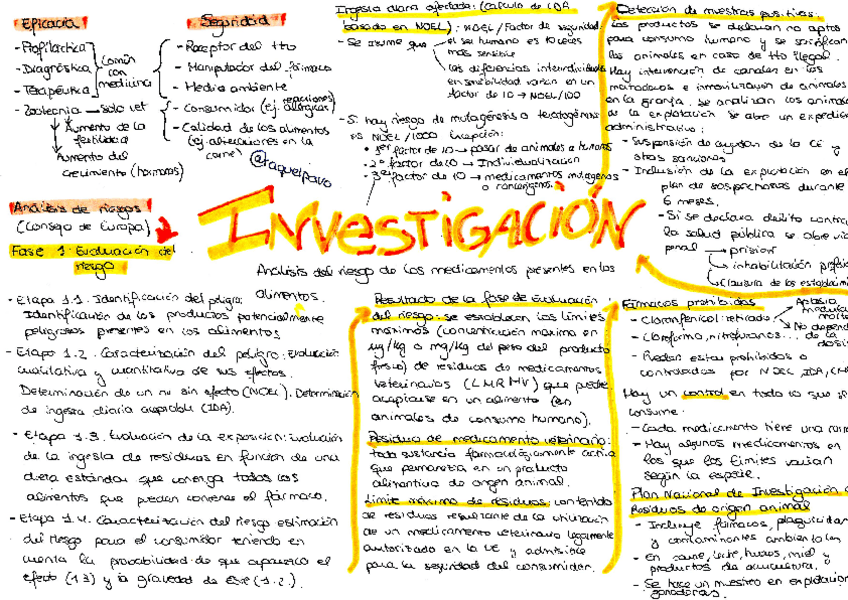 Eficacia
- Profiláctica
- Diagnóstica
- Terapéutica
Común
con
medicina
- Zootecnia → solo vet
Aumento de la
fertilidad
Aumento del
crecimiento (hormonas)
Seguridad
- Receptor del tto
- Manipulador del fármaco
- Medio ambiente
- Consumidor (ej. reacciones
alérgicas)
- Calidad de los alimentos
(ej. alteraciones en la
carne)
@raquelpavo
Ingesta diaria aceptada: (Cálculo de IDA
basado en NOEL): NOEL / Factor de seguridad:
- Se asume que
el ser humano es 10 veces
más sensible
las diferencias interindividuales
en sensibilidad varían en un
factor de 10 → NOEL/100
- Si hay riesgo de mutagénesis o teratogénesis
es NOEL/1000 Excepción:
• 1er factor de 10 → pasar de animales a humanos
• 2º factor de 10 → Individualización
• 3er factor de 10 → medicamentos mutágenos
o cancerígenos.
Detección de muestras positivas:
Los productos se declaran no aptos
para consumo humano y se sacrifican
los animales en caso de tto ilegal.
Hay intervención de canales en los
mataderos e inmovilización de animales
en la granja. Se analizan los animales
de la explotación se abre un expedien
administrativo:
- Suspensión de ayudas de la CE y
otras sanciones
- Inclusión de la explotación en el
plan de sospechosos durante
6 meses.
- Si se declara delito contra
la salud pública se abre vía
penal → prisión
→ inhabilitación profesi
→ Clausura de los establecimi
INVESTIGACIÓN
Análisis del riesgo de los medicamentos presentes en los
alimentos.
Análisis de riesgos
(Consejo de Europa)
Fase 1: Evaluación del
riesgo
- Etapa 1.1. Identificación del peligro:
Identificación de los productos potencialmente
peligrosos presentes en los alimentos
- Etapa 1.2. Caracterización del peligro: Evaluación
cualitativa y cuantitativa de sus efectos.
Determinación de un nv sin efecto (NOEL). Determinación
de ingesta diaria aceptable (IDA).
- Etapa 1.3. Evaluación de la exposición: Evaluación
de la ingesta de residuos en función de una
dieta estándar que contenga todos los
alimentos que pueden contener el fármaco.
- Etapa 1.4. Caracterización del riesgo estimación
del riesgo para el consumidor teniendo en
cuenta la probabilidad de que aparezca el
efecto (1.3) y la gravedad de este (1.2.).
Resultado de la fase de Evaluación
del riesgo: se establecen los límites
máximos (concentración máxima en
µg/kg o mg/kg del peso del producto
fresco) de residuos de medicamentos
veterinarios (LMRMV) que puede
aceptarse en un alimento (en
animales de consumo humano).
Residuo de medicamento veterinario:
toda sustancia farmacológicamente activa
que permanezca en un producto
alimenticio de origen animal.
Límite máximo de residuos: contenido
de residuos resultante de la utilización
de un medicamento veterinario legalmente
autorizado en la UE y admisible
para la seguridad del consumidor.
Fármacos prohibidos
- Cloranfenicol: retirado
Aplasia
medular
→ No depend
- Cloroformo, nitrofuranos... de la
- Pueden estar prohibidos o
controlados por NOEL, IDA,
Hay un control en todo lo que se
consume.
- Cada medicamento tiene una
- Hay algunos medicamentos en
los que los límites varían
según la especie.
Plan Nacional de Investigación de
Residuos de origen animal
- Incluye fármacos, plaguicidas
y contaminantes ambientales
- En carne, leche, huevos, miel y
productos de acuicultura.
- Se hace un muestreo en explotacion
ganaderas.